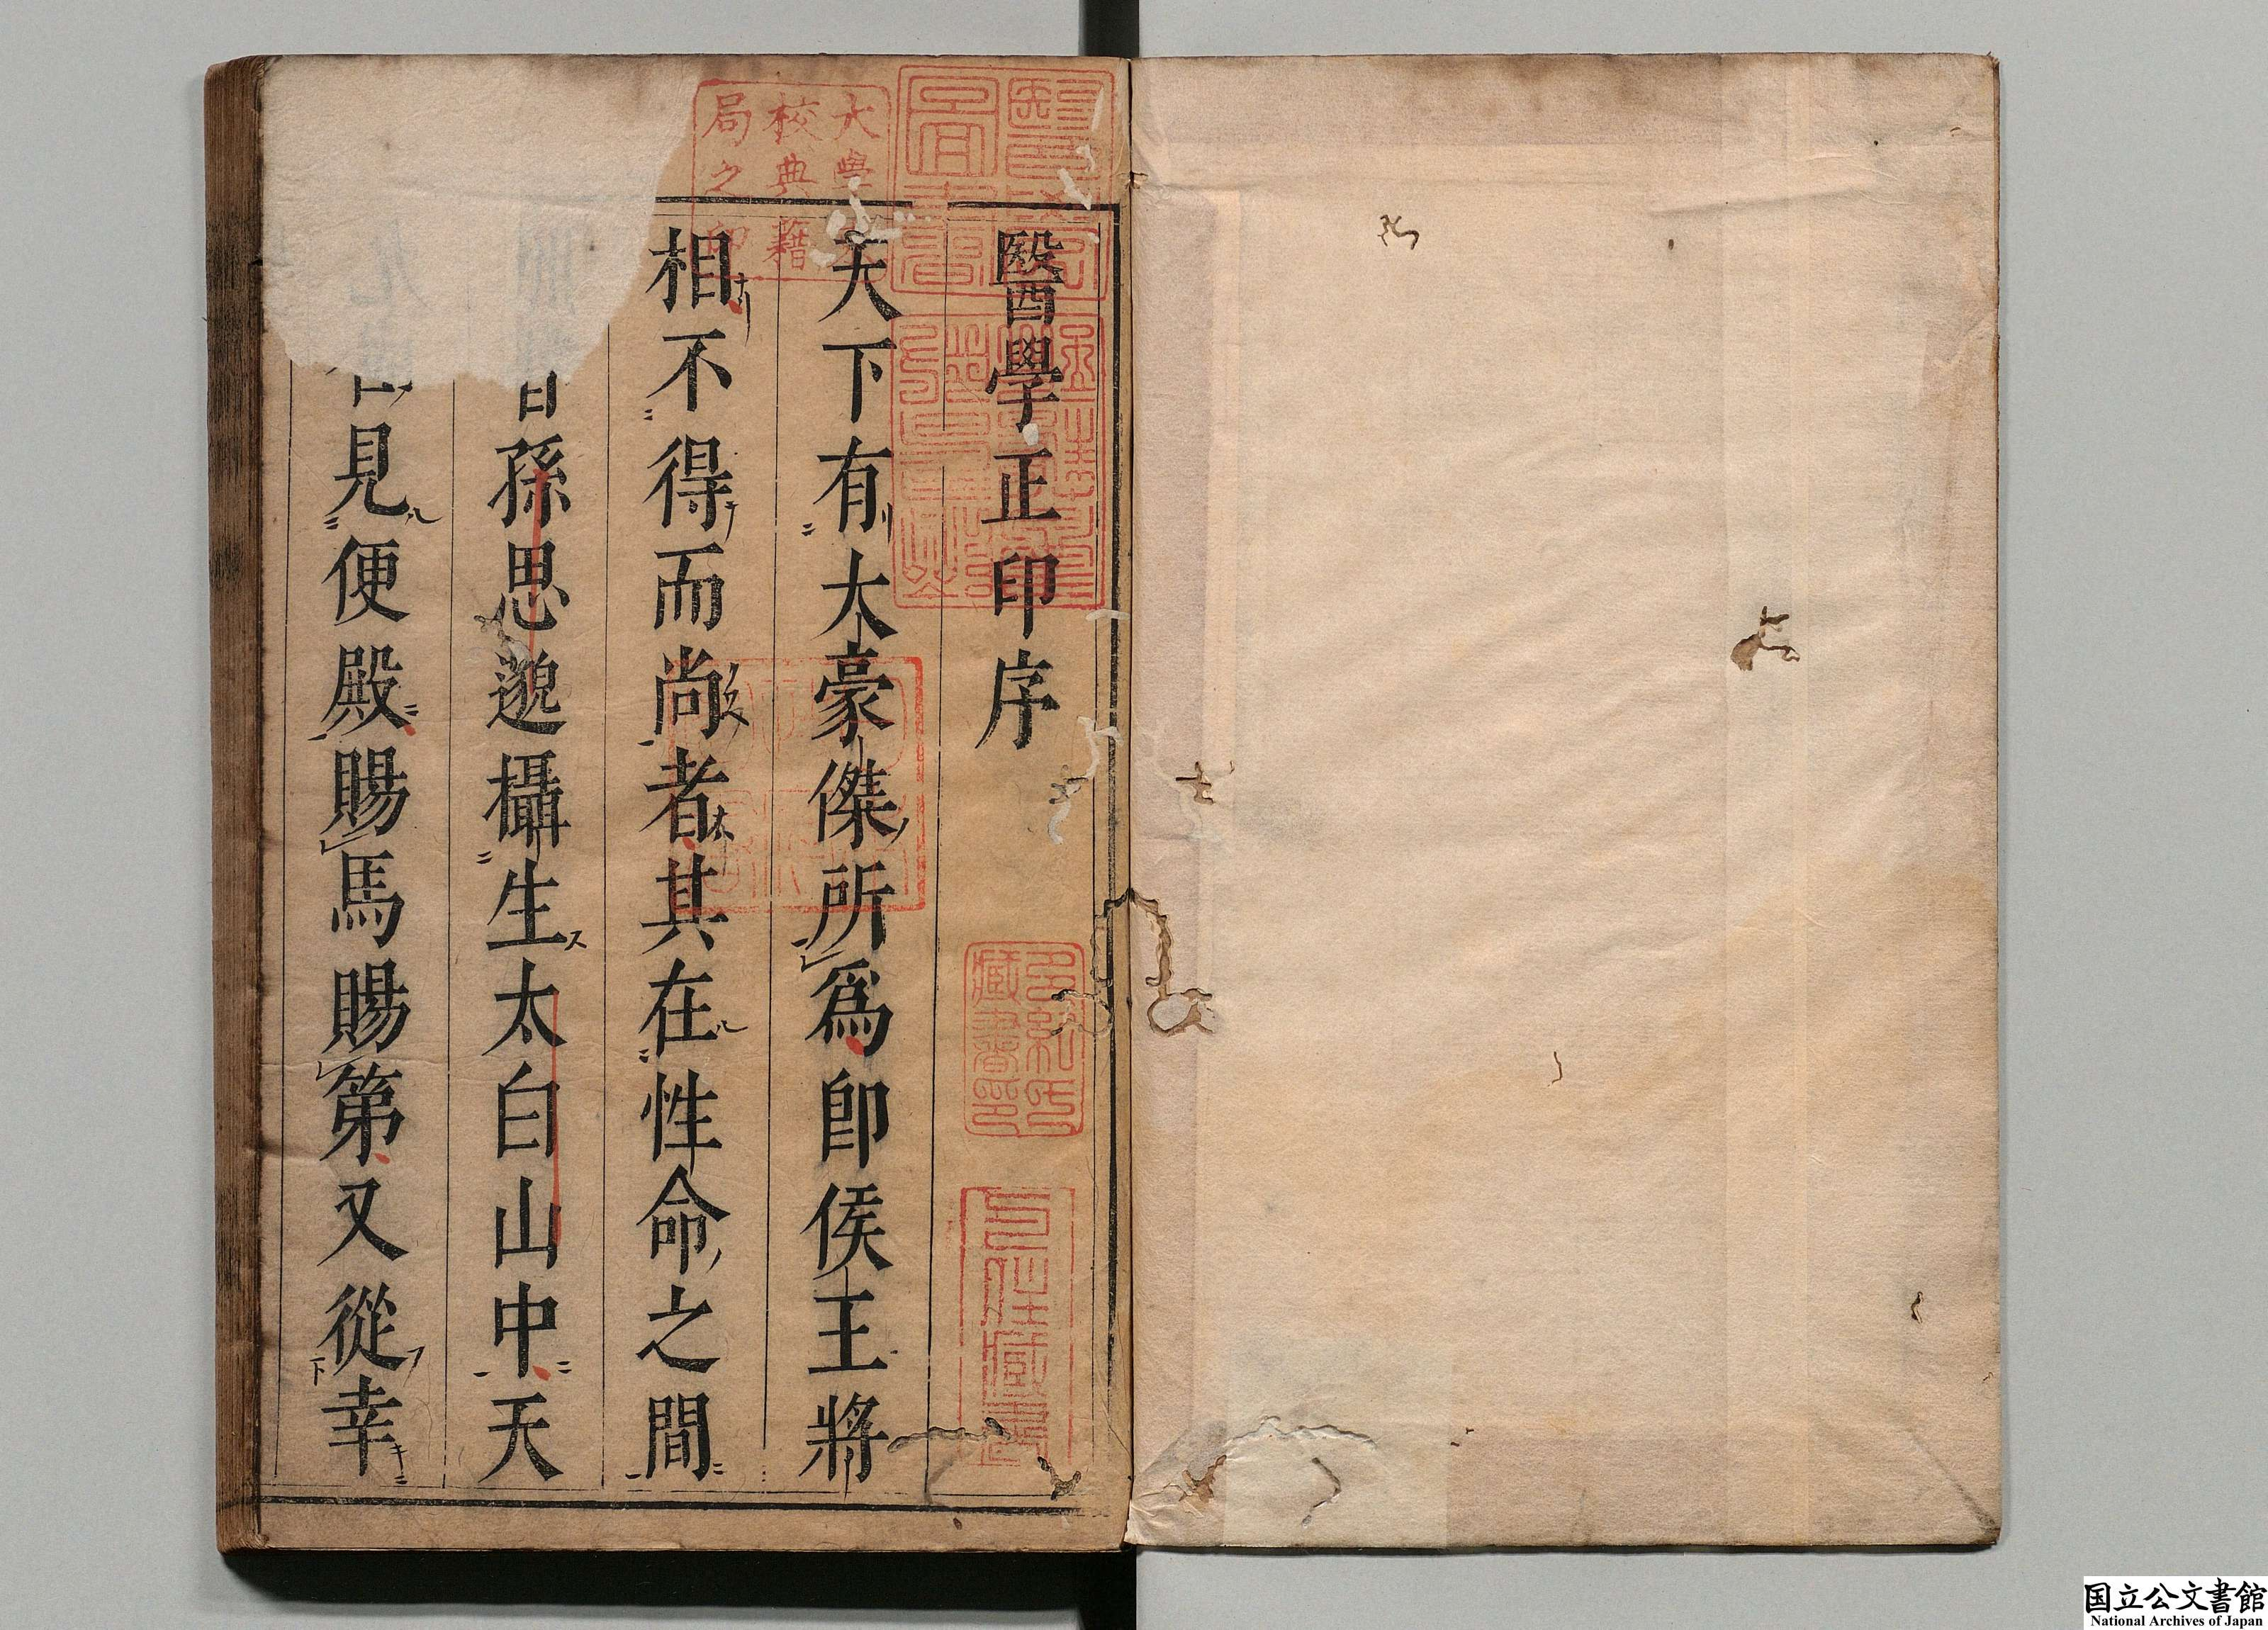 醫學正印序
天下有大豪傑所爲卽侯王將
相不得而尚者其在性命之間
昔孫思邈攝生太白山中天
召見便殿賜馬賜第又從幸
大學
校典籍
局之印
醫學圖書
多紀氏藏書印
国立公文書館
National Archives of Japan